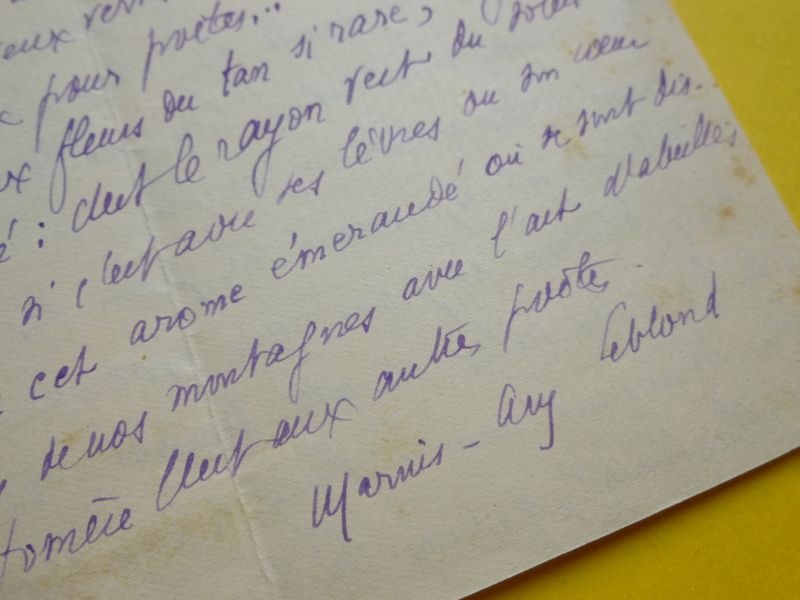 pour poètes...
fleurs du tan si rare,
: c'est le rayon vert du soleil
si c'est avec ses lèvres ou son cœur
cet arome émeraudé où se sont dis..
de nos montagnes avec l'art d'abeilles
c'est aux autres poètes.
Marius-Ary Leblond